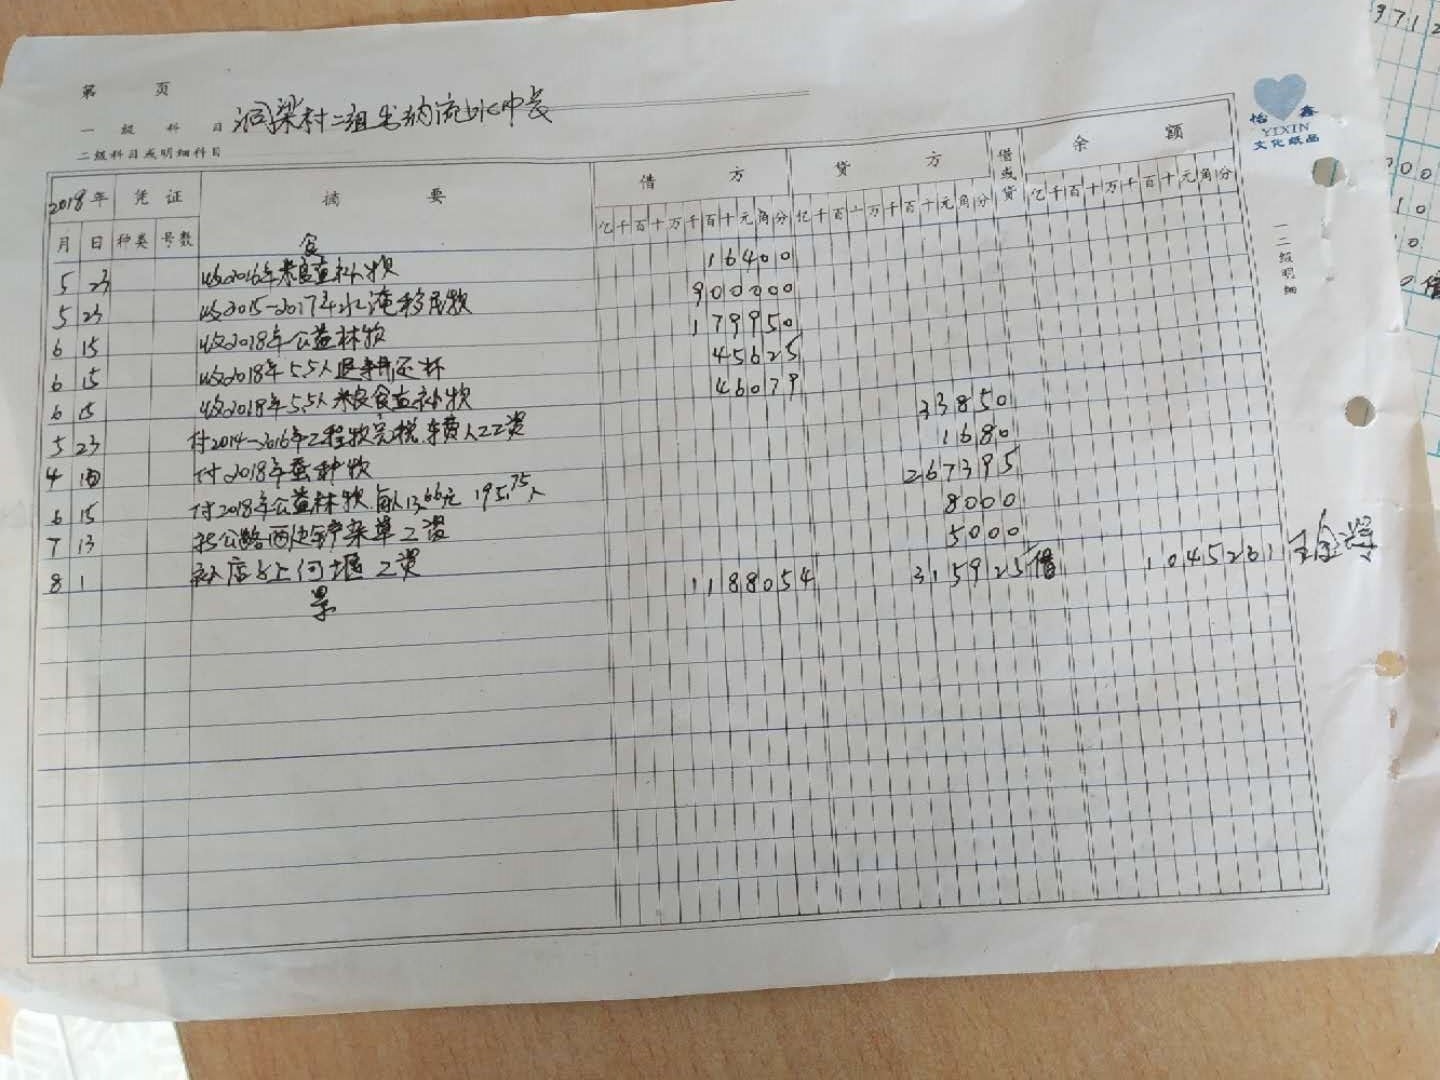 第 页
一 级 科 目 洞梁村二组出纳流水中长
二级科目或明细科目
2018年 凭 证 摘 要 借 方 贷 方 借或贷 余 额
月 日 种类 号数 亿千百十万千百十元角分 亿千百十万千百十元角分 亿千百十万千百十元角分
食
5 23 收2016年粮食直补款 16400
5 23 收2015-2017年水淹移民款 900000
6 15 收2018年公益林款 179950
6 15 收2018年5.5人退耕还林 45625
6 15 收2018年5.5人粮食直补款 46079
5 23 付2014-2016年工程款完税.车费人工工资 33850
4 10 付2018年蚕种款 1680
6 15 付2018年公益林款.每人13.66元 195.75人 267395
7 13 公路两边铲杂草工资 8000
8 1 店子上河堰工资 5000
累 1188054 315925 借 1045261
怡 鑫
YIXIN
文化纸品
一二级明细
3712
00
10
10
0 借